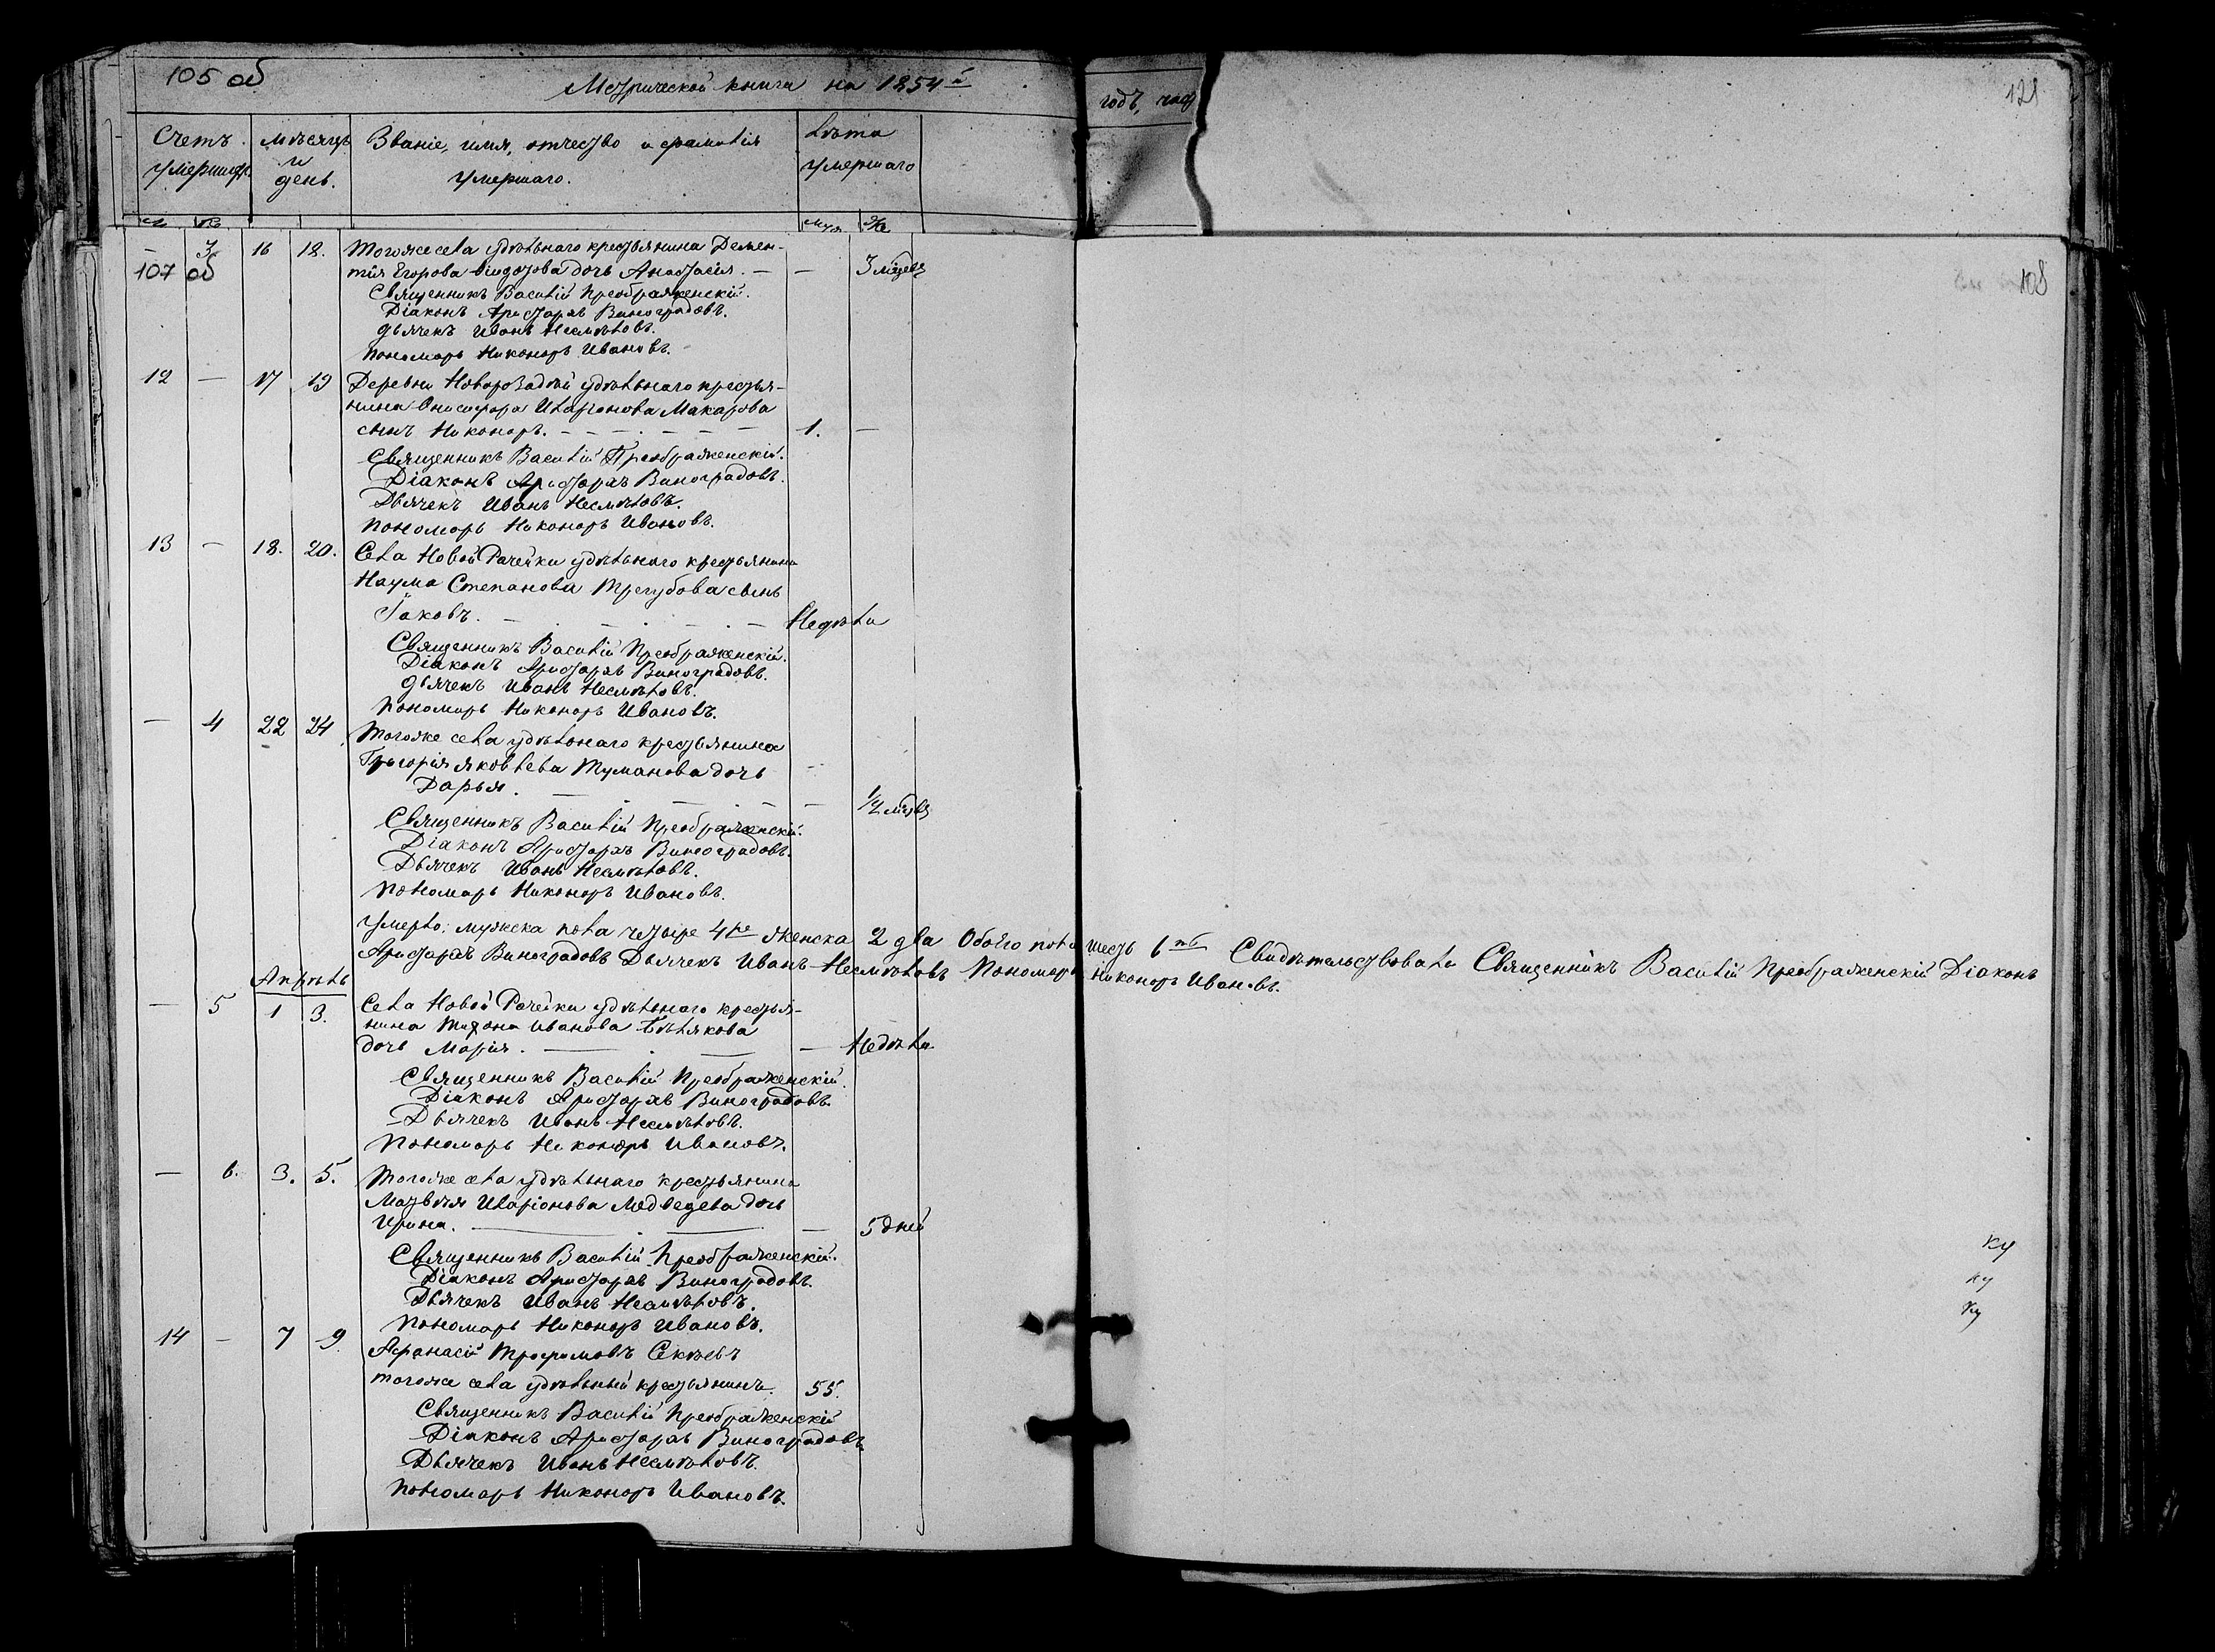 105 об
Метрической книги на 1854й годъ, част
121
Счетъ умершихъ.
Мѣсяцъ и день.
Званіе, имя, отчество и фамилія умершаго.
Лѣта умершаго
м. ж.
муж. же
— 3 16 18. Тогоже села удѣльнаго крестьянина Демен-
107 об
108
тія Егорова дочь Анастасія. — — 3 мѣсец
Священникъ Василій Преображенскій.
Діаконъ Аристархъ Виноградовъ.
дьячекъ Иванъ Несмѣловъ.
пономарь Никоноръ Ивановъ.
12 — 17 19 Деревни удѣльнаго крестья-
нина Онисифора Иларіонова Макарова
сынъ Никоноръ. — — — 1. —
Священникъ Василій Преображенскій.
Діаконъ Аристархъ Виноградовъ.
Дьячекъ Иванъ Несмѣловъ.
пономарь Никоноръ Ивановъ.
13 — 18. 20. Села Новой Рачейки удѣльнаго крестьянина
Наума Степанова Трегубова сынъ
Іаковъ. — — — Недѣли
Священникъ Василій Преображенскій.
Діаконъ Аристархъ Виноградовъ.
дьячекъ Иванъ Несмѣловъ.
пономарь Никоноръ Ивановъ.
— 4 22 24 Тогоже села удѣльнаго крестьянина
Григорія Яковлева Туманова дочь
Дарья. — — — 1/2 мѣсец
Священникъ Василій Преображенскій.
Діаконъ Аристархъ Виноградовъ.
Дьячекъ Иванъ Несмѣловъ.
пономарь Никоноръ Ивановъ.
Умерло: мужска пола четыре 4ре женска 2 два Обоего пола шесть 6ть Свидѣтельствовали Священникъ Василій Преображенскій Діаконъ
Аристархъ Виноградовъ Дьячекъ Иванъ Несмѣловъ Пономарь Никоноръ Ивановъ.
Апрѣль
— 5 1 3. Села Новой Рачейки удѣльнаго крестья-
нина Тихона Иванова Бѣлякова
дочь Марія. — — — Недѣли
Священникъ Василій Преображенскій.
Діаконъ Аристархъ Виноградовъ.
Дьячекъ Иванъ Несмѣловъ.
пономарь Никоноръ Ивановъ.
— 6. 3. 5. Тогоже села удѣльнаго крестьянина
Матвѣя Иларіонова Медведева дочь
Ирина. — — — 5 дней
ку
Священникъ Василій Преображенскій.
Діаконъ Аристархъ Виноградовъ.
ку
Дьячекъ Иванъ Несмѣловъ.
ку
пономарь Никоноръ Ивановъ.
14 — 7 9. Афанасій Трофимовъ
тогоже села удѣльный крестьянинъ. 55.
Священникъ Василій Преображенскій
Діаконъ Аристархъ Виноградовъ
Дьячекъ Иванъ Несмѣловъ.
пономарь Никоноръ Ивановъ.